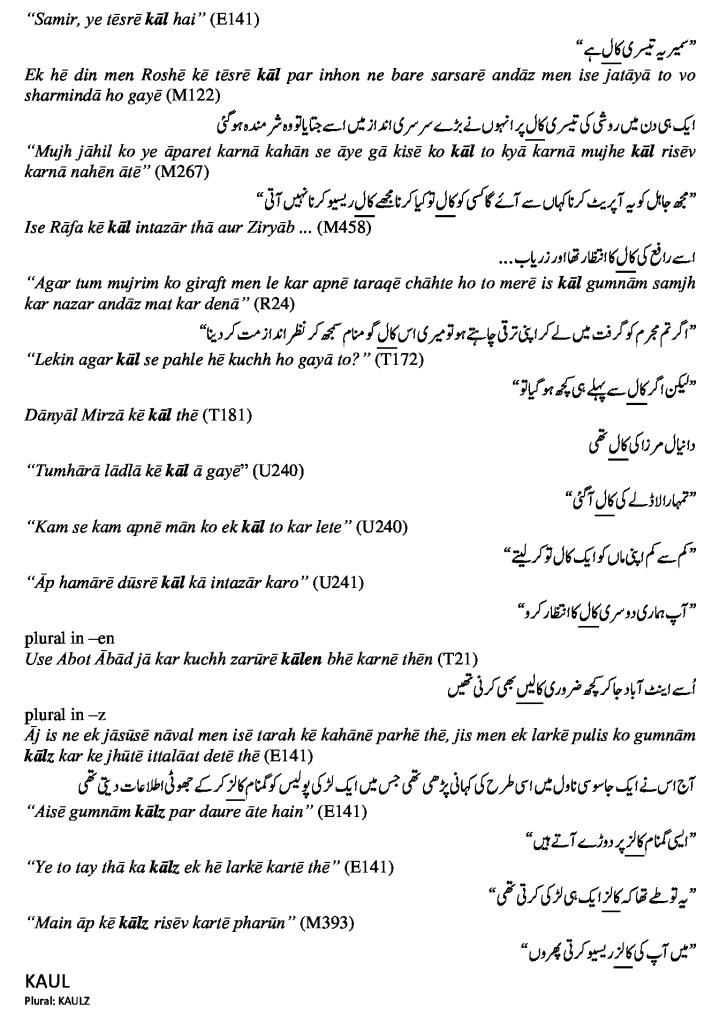 “Samir, ye tēsrē kāl hai” (E141)
”سمیر یہ تیسری کال ہے“
Ek hē din men Roshē kē tēsrē kāl par inhon ne bare sarsarē andāz men ise jatāyā to vo
sharmindā ho gayē (M122)
ایک ہی دن میں روشی کی تیسری کال پر انہوں نے بڑے سرسری انداز میں اسے جتایا تو وہ شرمندہ ہو گئی
“Mujh jāhil ko ye āparet karnā kahān se āye gā kisē ko kāl to kyā karnā mujhe kāl risēv
karnā nahēn ātē” (M267)
”مجھ جاہل کو یہ آپریٹ کرنا کہاں سے آئے گا کسی کو کال تو کیا کرنا مجھے کال ریسیو کرنا نہیں آتی“
Ise Rāfa kē kāl intazār thā aur Ziryāb ... (M458)
اسے رافع کی کال کا انتظار تھا اور زریاب ...
“Agar tum mujrim ko giraft men le kar apnē taraqē chāhte ho to merē is kāl gumnām samjh
kar nazar andāz mat kar denā” (R24)
”اگر تم مجرم کو گرفت میں لے کر اپنی ترقی چاہتے ہو تو میری اس کال کو گمنام سمجھ کر نظر انداز مت کر دینا“
“Lekin agar kāl se pahle hē kuchh ho gayā to?” (T172)
”لیکن اگر کال سے پہلے ہی کچھ ہو گیا تو“
Dānyāl Mirzā kē kāl thē (T181)
دانیال مرزا کی کال تھی
“Tumhārā lādlā kē kāl ā gayē” (U240)
”تمہارا لاڈلے کی کال آ گئی“
“Kam se kam apnē mān ko ek kāl to kar lete” (U240)
”کم سے کم اپنی ماں کو ایک کال تو کر لیتے“
“Āp hamārē dūsrē kāl kā intazār karo” (U241)
”آپ ہماری دوسری کال کا انتظار کرو“
plural in –en
Use Abot Ābād jā kar kuchh zarūrē kālen bhē karnē thēn (T21)
اُسے ایبٹ آباد جا کر کچھ ضروری کالیں بھی کرنی تھیں
plural in –z
Āj is ne ek jāsūsē nāval men isē tarah kē kahānē parhē thē, jis men ek larkē pulis ko gumnām
kālz kar ke jhūtē ittalāat detē thē (E141)
آج اس نے ایک جاسوسی ناول میں اسی طرح کی کہانی پڑھی تھی جس میں ایک لڑکی پولیس کو گمنام کالز کر کے جھوٹی اطلاعات دیتی تھی
“Aisē gumnām kālz par daure āte hain” (E141)
”ایسی گمنام کالز پر دوڑے آتے ہیں“
“Ye to tay thā ka kālz ek hē larkē kartē thē” (E141)
”یہ تو طے تھا کہ کالز ایک ہی لڑکی کرتی تھی“
“Main āp kē kālz risēv kartē pharūn” (M393)
”میں آپ کی کالز ریسیو کرتی پھروں“
KAUL
Plural: KAULZ